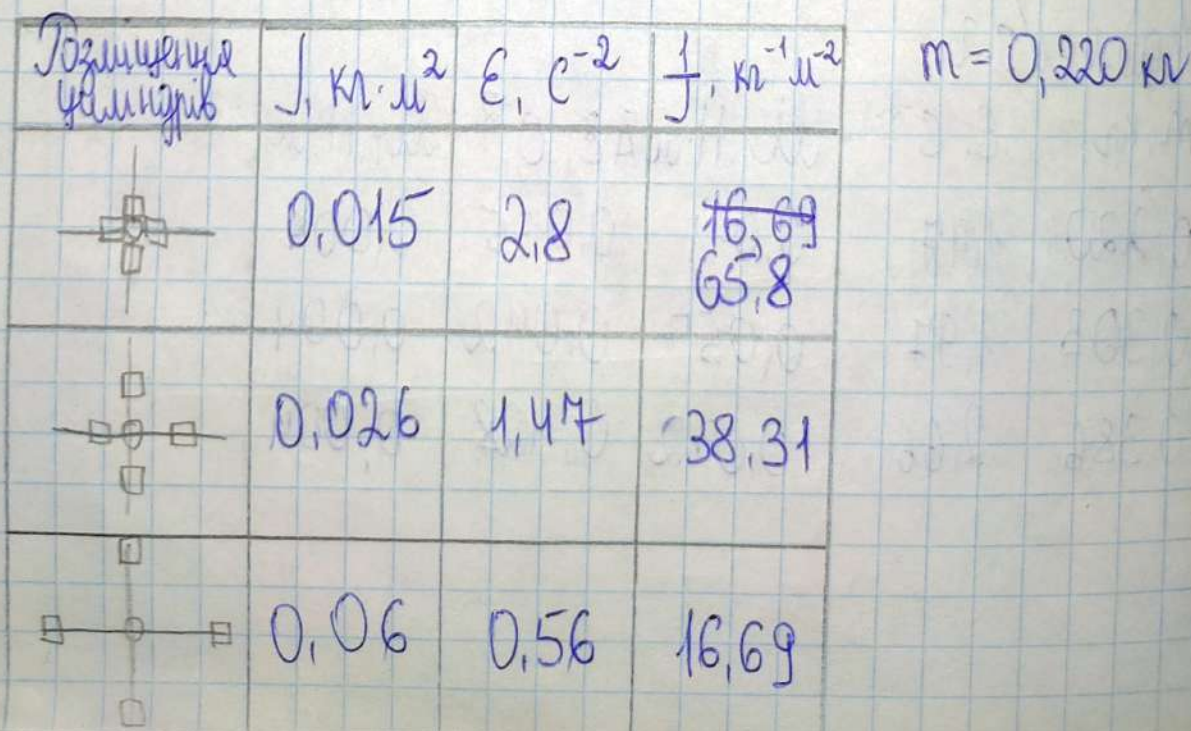 Розміщення циліндрів
J, кг·м² ε, с⁻² 1/J, кг⁻¹м⁻² m = 0,220 кг
0,015 2,8 ~~16,69~~
65,8
0,026 1,47 38,31
0,06 0,56 16,69